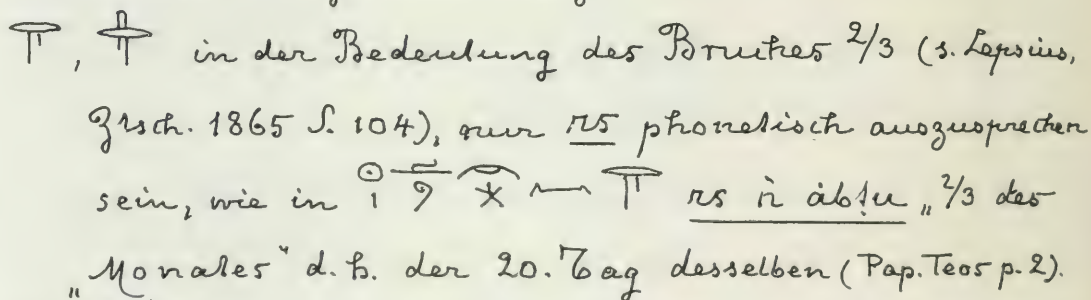 in der Bedeutung des Bruches 2/3 (s. Lepsius,
Ztsch. 1865 S. 104), nur rs phonetisch auszusprechen
sein, wie in rs n äbtu „2/3 des
Monates“ d.h. der 20. Tag desselben (Pap. Teos p. 2).